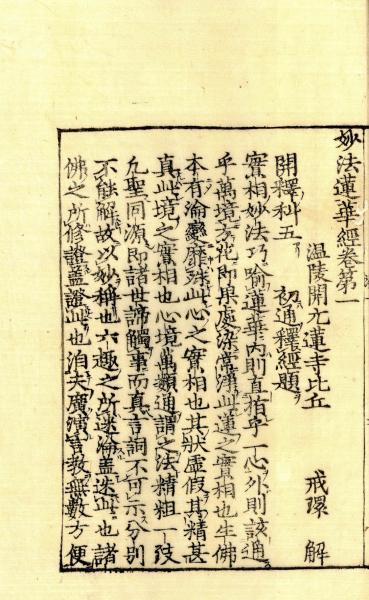 妙法蓮華經卷第一
溫陵開元蓮寺比丘 戒環 解
開釋科五 初通釋經題
實相妙法巧喻蓮華內則直指乎一心外則該通
乎萬境方花即果處染常淨此蓮之實相也生佛
本有淪變靡殊此心之實相也其狀虛假其精甚
真此境之實相也心境萬類通謂之法精粗一致
凡聖同源即諸世諦觸事而真言詞不可示分別
不能解故以妙稱也六趣之所迷淪盖迷此也諸
佛之所修證盖證此也洎夫廣演言教無數方便